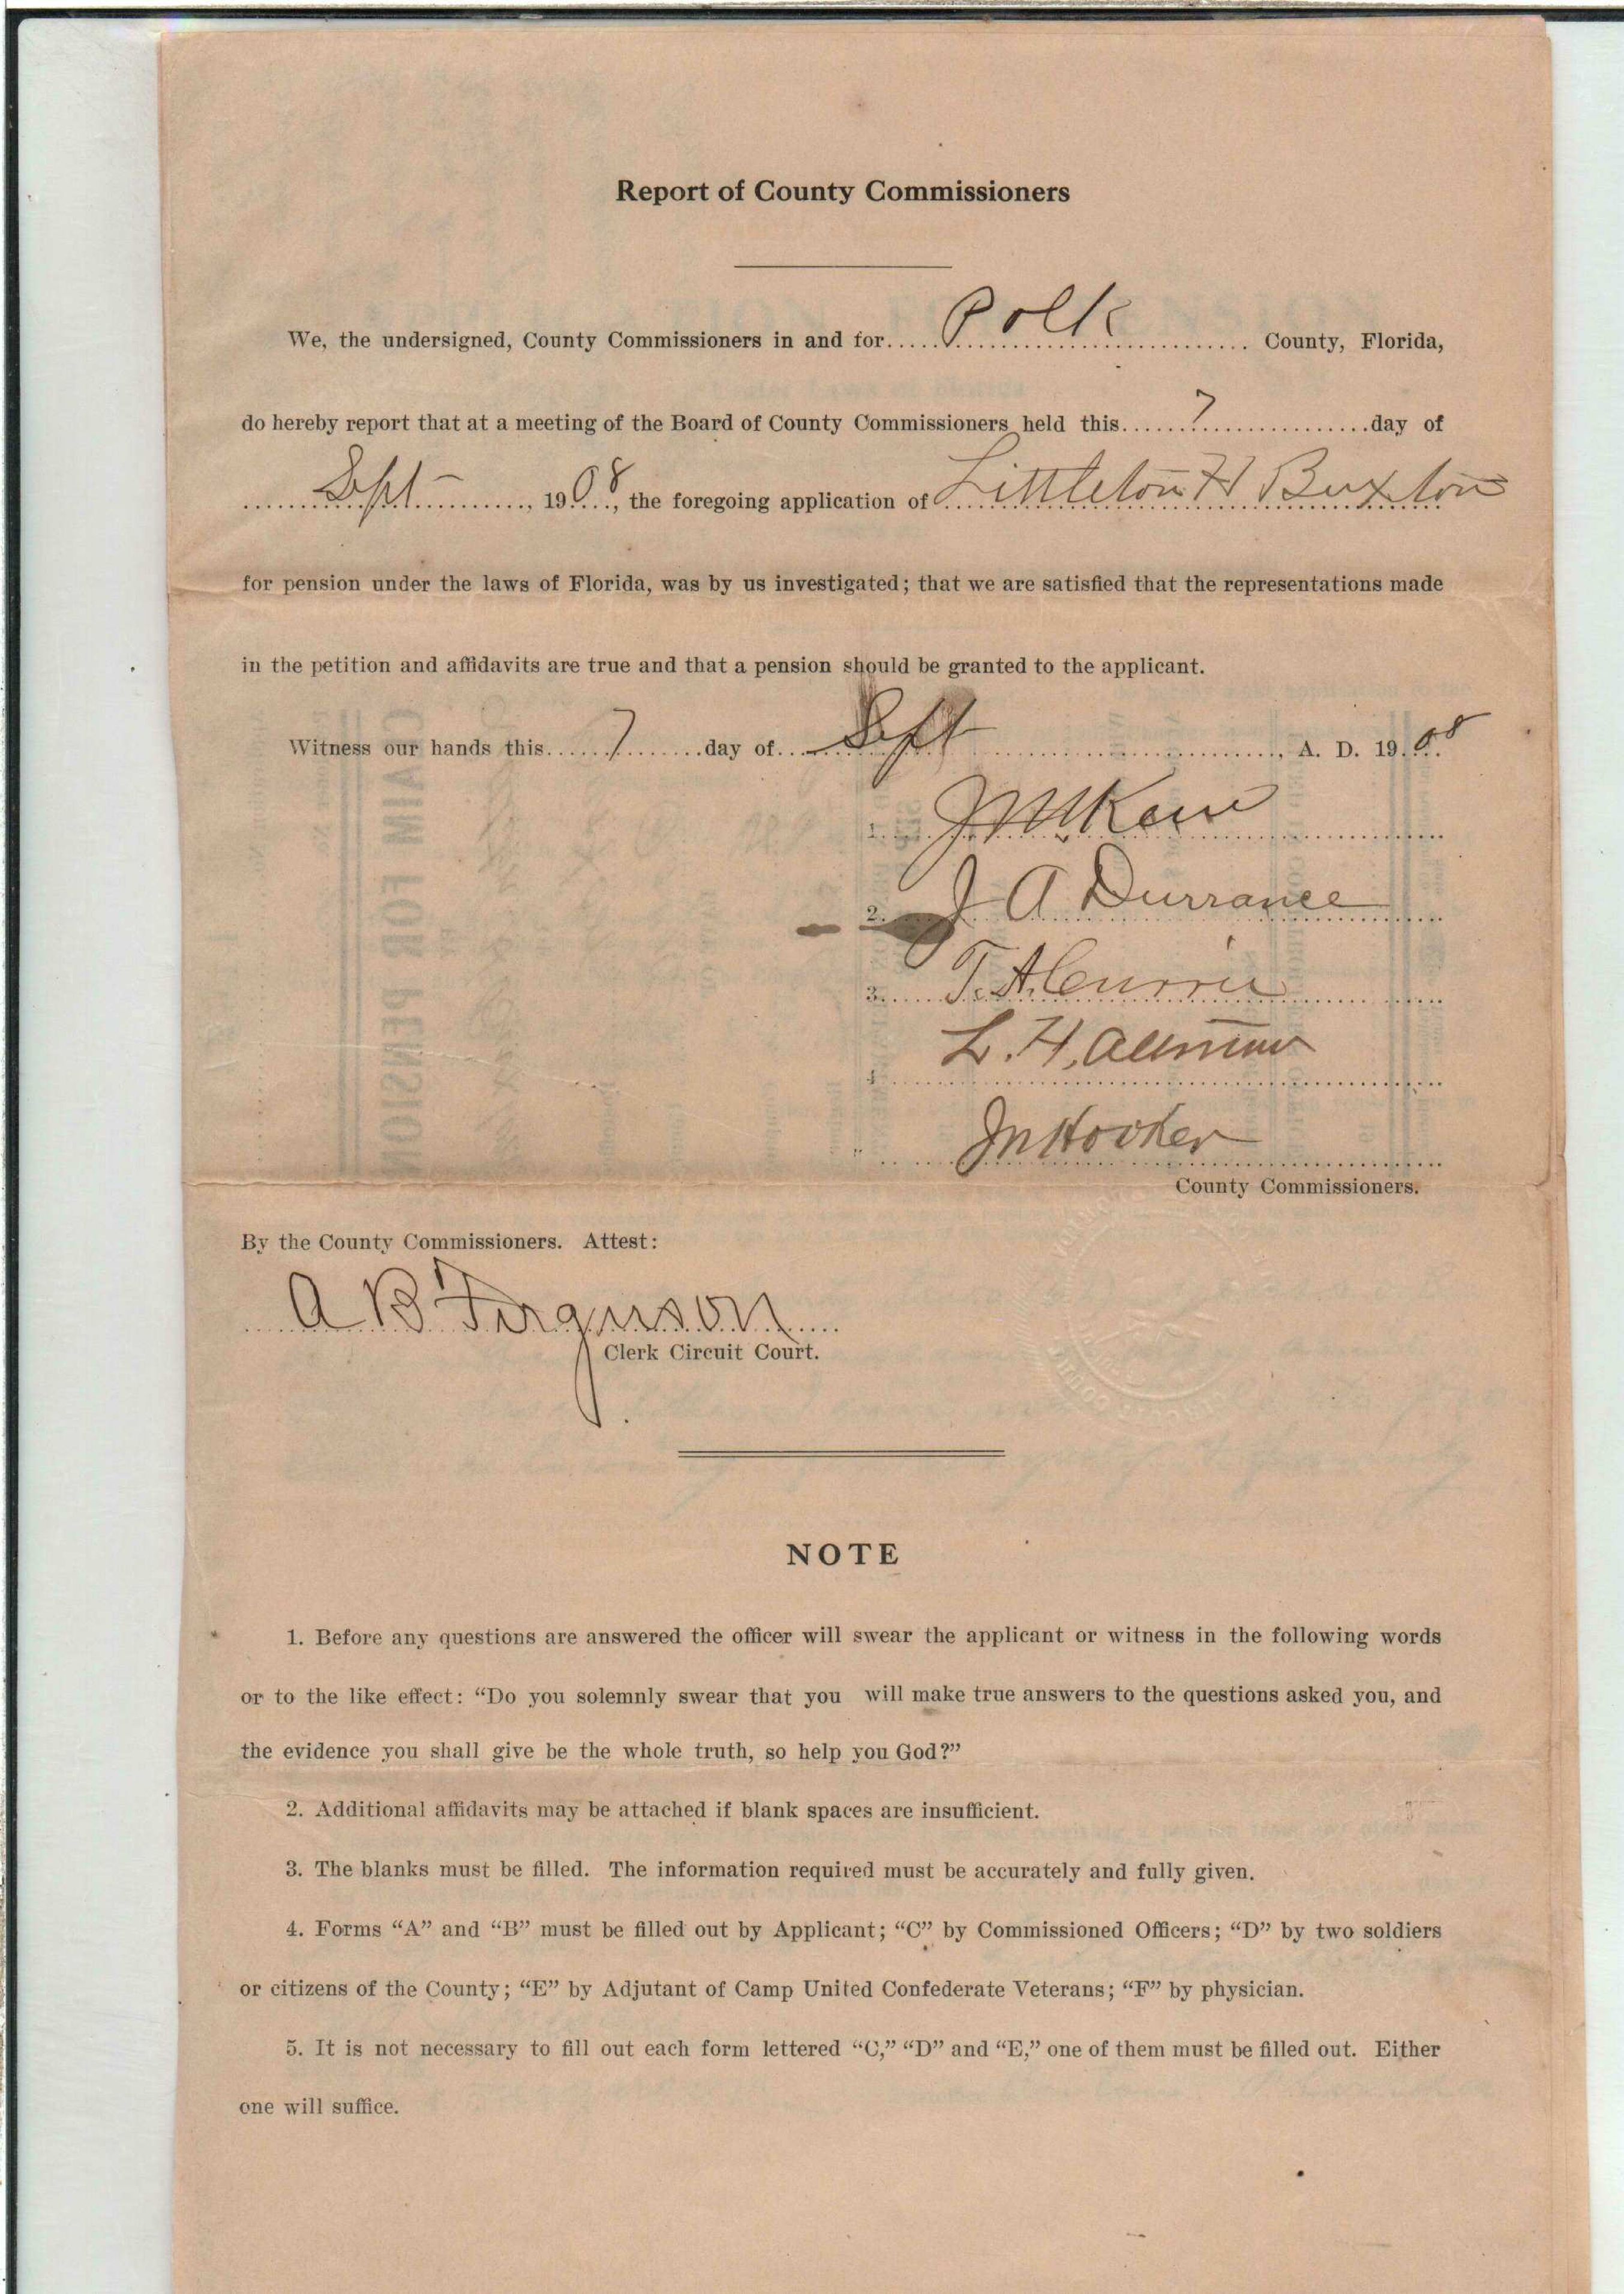 Report of County Commissioners
We, the undersigned, County Commissioners in and for.....Polk..... County, Florida,
do hereby report that at a meeting of the Board of County Commissioners held this.....7.....day of
.....Sept....., 1908, the foregoing application of Littleton H Buxton
for pension under the laws of Florida, was by us investigated; that we are satisfied that the representations made
in the petition and affidavits are true and that a pension should be granted to the applicant.
Witness our hands this.....7.....day of.....Sept....., A. D. 1908
1.
2. J A Durrance
3. T. A.
4. L. H.
Hooker
County Commissioners.
By the County Commissioners. Attest:
A B Ferguson
Clerk Circuit Court.
NOTE
1. Before any questions are answered the officer will swear the applicant or witness in the following words
or to the like effect: “Do you solemnly swear that you will make true answers to the questions asked you, and
the evidence you shall give be the whole truth, so help you God?”
2. Additional affidavits may be attached if blank spaces are insufficient.
3. The blanks must be filled. The information required must be accurately and fully given.
4. Forms “A” and “B” must be filled out by Applicant; “C” by Commissioned Officers; “D” by two soldiers
or citizens of the County; “E” by Adjutant of Camp United Confederate Veterans; “F” by physician.
5. It is not necessary to fill out each form lettered “C,” “D” and “E,” one of them must be filled out. Either
one will suffice.